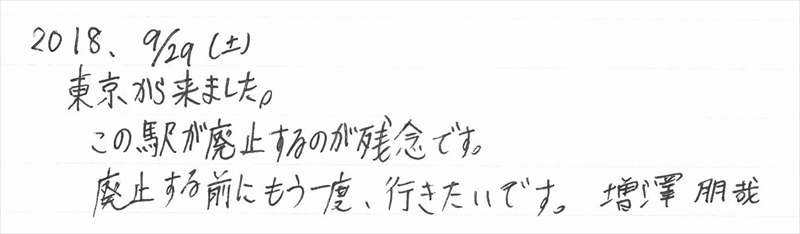 2018、9/29(土)
東京から来ました。
この駅が廃止するのが残念です。
廃止する前にもう一度、行きたいです。 増澤 朋哉